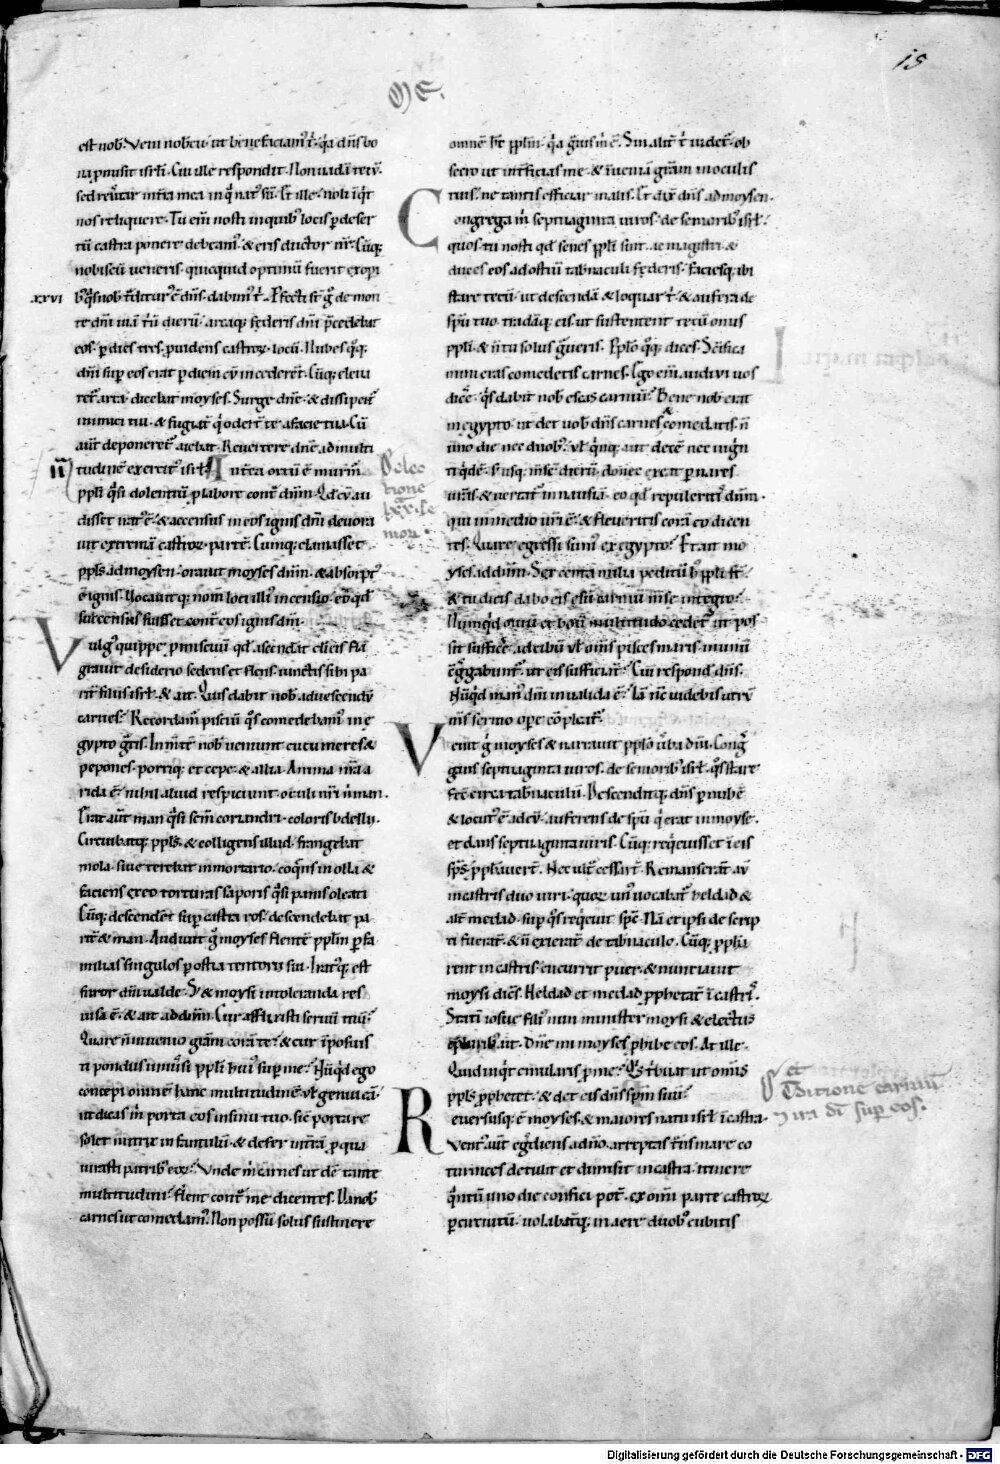 15
est nob᷒. Veni nobcū. ut benefaciam᷒ t̄. q̄a dn̄s bo
na p̄misit isrl̄i. Cui ille respondit. Non vadā tecū.
sed revt̄ar int̄ra mea in q̄ nat᷒ sū. Et ille. noli īqt
nos relinquere. Tu em̄ nosti in quib᷒ locis p̄ deser
tū castra ponere debeam᷒. & eris ductor nr̄. Cūq;
nobiscū veneris. quicquid optimū fuerit ex opi
xxvi
te dn̄i viā triū dierū. arcaq; fęderis dn̄i p̄cedebat
eos. p̄ dies tres. p̄videns castroꝝ locū. Nubes q̄q;
dn̄i sup̄ eos erat p̄ diem cū incederent. Cūq; eleva
ret᷒ arca. dicebat moyses. Surge dn̄e. & dissipent᷒
inimici tui. & fugiant q̄ oderunt te a facie tua. Cū
aut̄ deponeret᷒ aiebat. Revertere dn̄e ad multi
tudinē exercit᷒ isrl̄.
ppl̄i q̄si dolentiū p̄ labore cont̄ dn̄m. Qd̄ cū au
disset irat᷒ ē. & accensus in eos ignis dn̄i devora
vit extremā castroꝝ partē. Cumq; clamasset
ppl̄s ad moysen. oravit moyses dn̄m. & absorpt᷒
ē ignis. Vocavitq; nom̄ loci illi᷒ incensio. eo qd̄
succensus fuisset cont̄ eos ignis dn̄i.
Vulg᷒ quippe p̄miscuū qd̄ ascenderat cū eis fla
gravit desiderio sedens et flens. iunctis sibi pa
rit̄ filiis isrl̄. & ait. Quis dabit nob᷒ ad vescendū
carnes? Recordam᷒ pisciū q̄s comedebam᷒ in e
gypto gratis. In mt̄e nob᷒ veniunt cucumeres &
pepones. porriq; et cepe. & allia. Anima nr̄a a
rida ē. nihil aliud respiciunt oculi nr̄i n̄ man.
Erat aut̄ man q̄si sem̄ coriandri. coloris bdelly.
Circuibatq; ppl̄s. & colligens illud. frangebat
mola. sive terebat in mortario. coq̄ns in olla &
faciens ex eo torturas saporis q̄si panis oleati
Cūq; descenderet sup̄ castra ros. descendebat pa
rit̄ & man. Audivit ḡ moyses flentē ppl̄m p̄ fa
milias singulos p̄ ostia tentorii sui. Irat᷒q; est
furor dn̄i valde. Sꝫ & moysi intoleranda res
visa ē. & ait ad dn̄m. Cur afflixisti servū tuū?
Quare n̄ invenio gratiam corā te? & cur īposuis
ti pondus universi ppl̄i hui᷒ sup̄ me? Nūqd ego
concepi omnē hanc multitudinē. vl̄ genui eā.
ut dicas m̄. porta eos in sinu tuo. sic̄ portare
solet nutrix infantulū. & defer in t̄rā. p̄ qua
iurasti patrib᷒ eoꝝ? Unde m̄ carnes ut dē tante
multitudini? Flent cont̄ me dicentes. Da nob᷒
carnes ut comedam᷒. Non possū solus sustinere
omnē h̄c ppl̄m. q̄a gravis m̄ ē. Sin alit̄ t̄ videt᷒. ob
secro ut int̄ficias me. & inveniā gratiam in oculis
tuis. ne tantis efficiar malis. Et dix̄ dn̄s ad moysen.
Congrega m̄ septuaginta viros. de senioribus isrl̄.
quos tu nosti qd̄ senes ppl̄i sint. ac magistri. &
duces eos ad ostiū tabnaculi fęderis. faciesq; ibi
stare tecū. ut descendā & loquar t̄. & auferā de
spū tuo. tradāq; eis. ut sustentent tecū onus
ppl̄i. & n̄ tu solus graveris. Pplo q̄q; dices. Sc̄ifica
mini. cras comedetis carnes. Ego em̄ audivi vos
dicē. Q̄s dabit nob᷒ escas carniū? Bene nob᷒ erat
in egypto. ut det vob᷒ dn̄s carnes & comedatis. n̄
uno die nec duob᷒. vl̄ q̄nq; aut decē. nec viginti
ti q̄dē. sꝫ usq; ad mensē dierū. donec exeat p̄ nares
vr̄as. & vertat᷒ in nausiā. eo qd̄ repuleritis dn̄m.
qui in medio vr̄i ē. & fleveritis corā eo dicen
tes. Quare egressi sum᷒ ex egypto? Et ait mo
yses ad dn̄m. Sexcenta milia peditū h᷒ ppl̄i st̄.
& tu dicis dabo eis esū carniū mense integro?
Nūqd oviū et boū multitudo cedet᷒. ut pos
sit sufficē ad cibū. vl̄ om̄s pisces maris in unū
c̄gregabunt᷒. ut eis sufficiant? Cui respond̄ dn̄s.
Nūqd man᷒ dn̄i invalida ē? Iā nc̄ videbis utrū
ms̄ sermo ope cōpleat᷒.
Venit ḡ moyses & narravit pplo v̄ba dn̄i. Cong̃
gans septuaginta viros. de seniorib᷒ isrl̄. q̄s stare
fecit circa tabnaculū. Descenditq; dn̄s p̄ nubē
& locut᷒ ē ad eū. auferens de spū q̄ erat in moyse.
et dans septuaginta viris. Cūq; req̄evisset ī eis
sp̄s. pphaverunt. Nec ult̄ cessarunt. Remanserant aū
in castris duo viri. quoꝝ un᷒ vocabat᷒ heldad &
alt̄ medad. sup̄ q̄s reqevit spc̄. Nā et ipsi descrip
ti fuerant. & n̄ exierant de tabnaculo. Cūq; ppha
rent in castris. cucurrit puer. & nuntiavit
moysi dicēs. Heldad et medad pphetant ī castris.
Stati iosue fili᷒ nun minister moysi & electus
e plurib᷒. ait. Dn̄e mi moyses p̄hibe eos. At ille.
Quid inqt emularis p̄ me? Q̄s tribuat ut om̄is
ppl̄s pphetet. & det eis dn̄s spm̄ suū?
Reversusq; ē moyses. & maiores natu isrl̄ ī castra.
Vent᷒ aut̄ egrediens a dn̄o. arreptas trans mare co
turnices detulit et dimisit in castra. itinere
q̄ntū uno die confici pot̄. ex omi parte castroꝝ
p̄ circuitū. volabantq; in aere duob᷒ cubitis
Digitalisierung gefördert durch die Deutsche Forschungsgemeinschaft - DFG